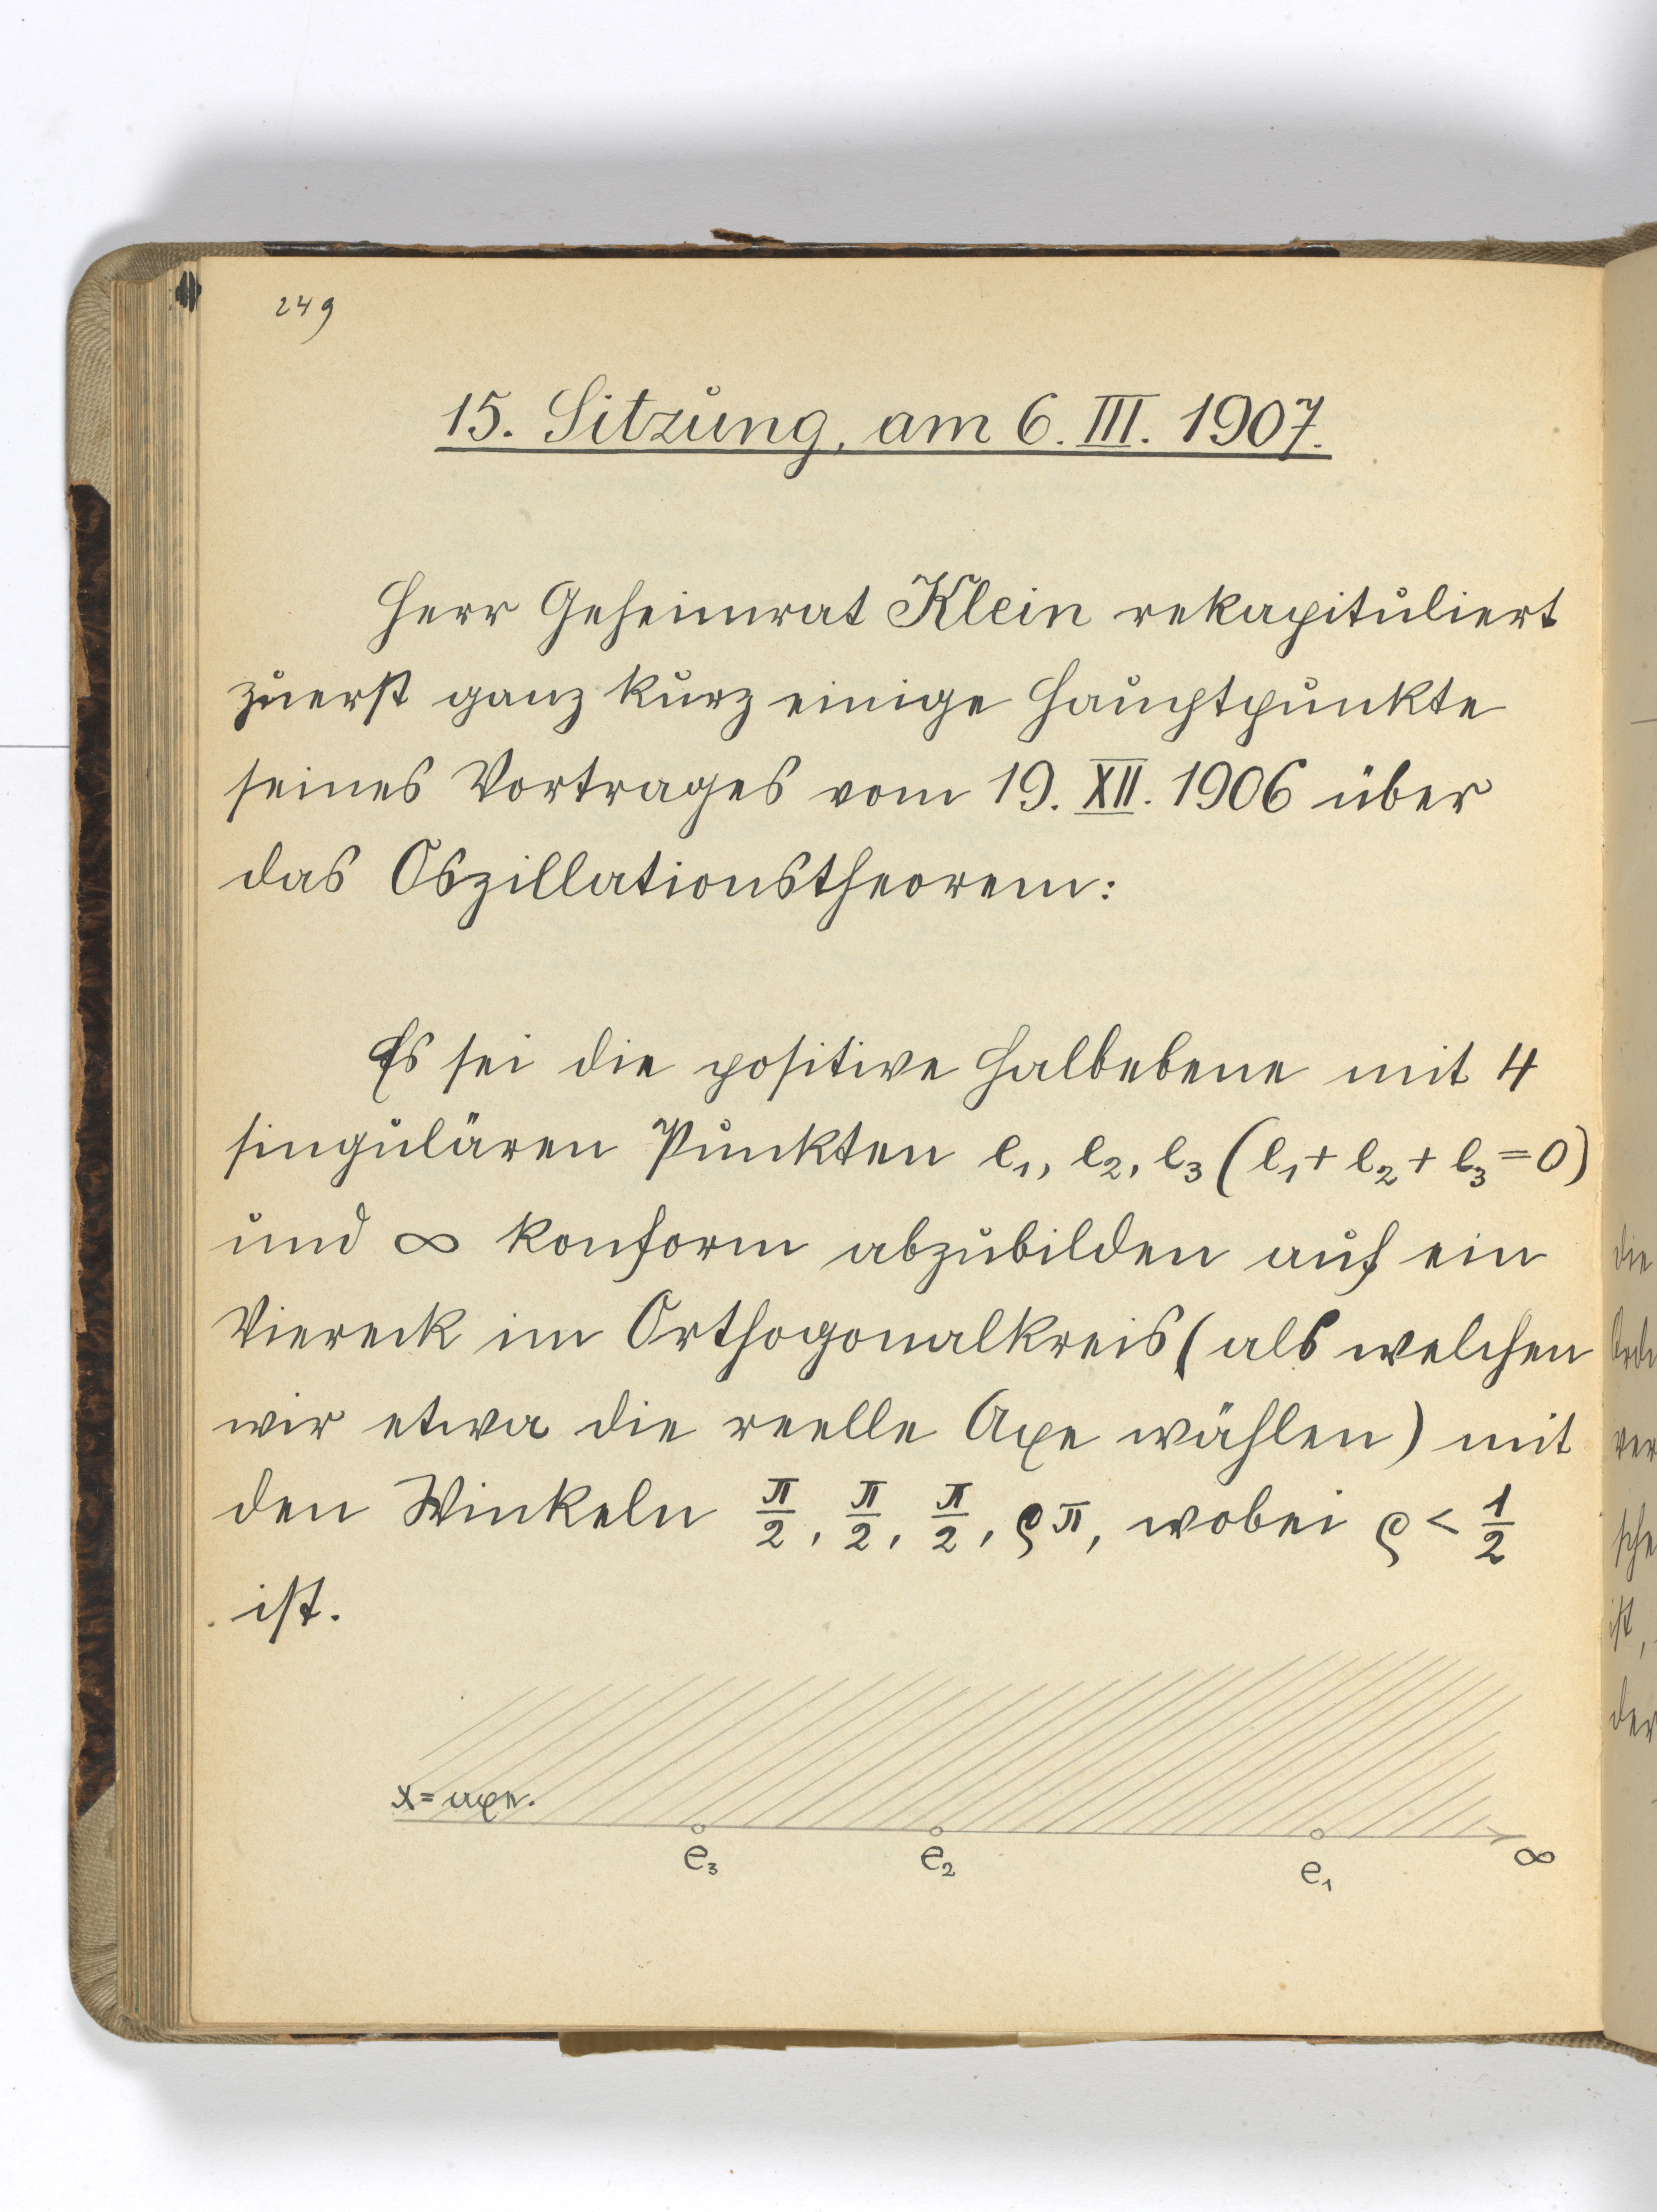 249
15. Sitzung, am 6. III. 1907.
Herr Geheimrat Klein rekapituliert
zuerst ganz kurz einige Hauptpunkte
seines Vortrages vom 19. XII. 1906 über
das Oszillationstheorem:
Es sei die positive Halbebene mit 4
singulären Punkten e₁, e₂, e₃ (e₁ + e₂ + e₃ = 0)
und ∞ konform abzubilden auf ein
Viereck im Orthogonalkreis (als welchen
wir etwa die reelle Axe wählen) mit
den Winkeln π/2, π/2, π/2, ϱπ, wobei ϱ < 1/2
ist.
x = axe.
e₃ e₂ e₁ ∞
die
ver
sche
ist,
der